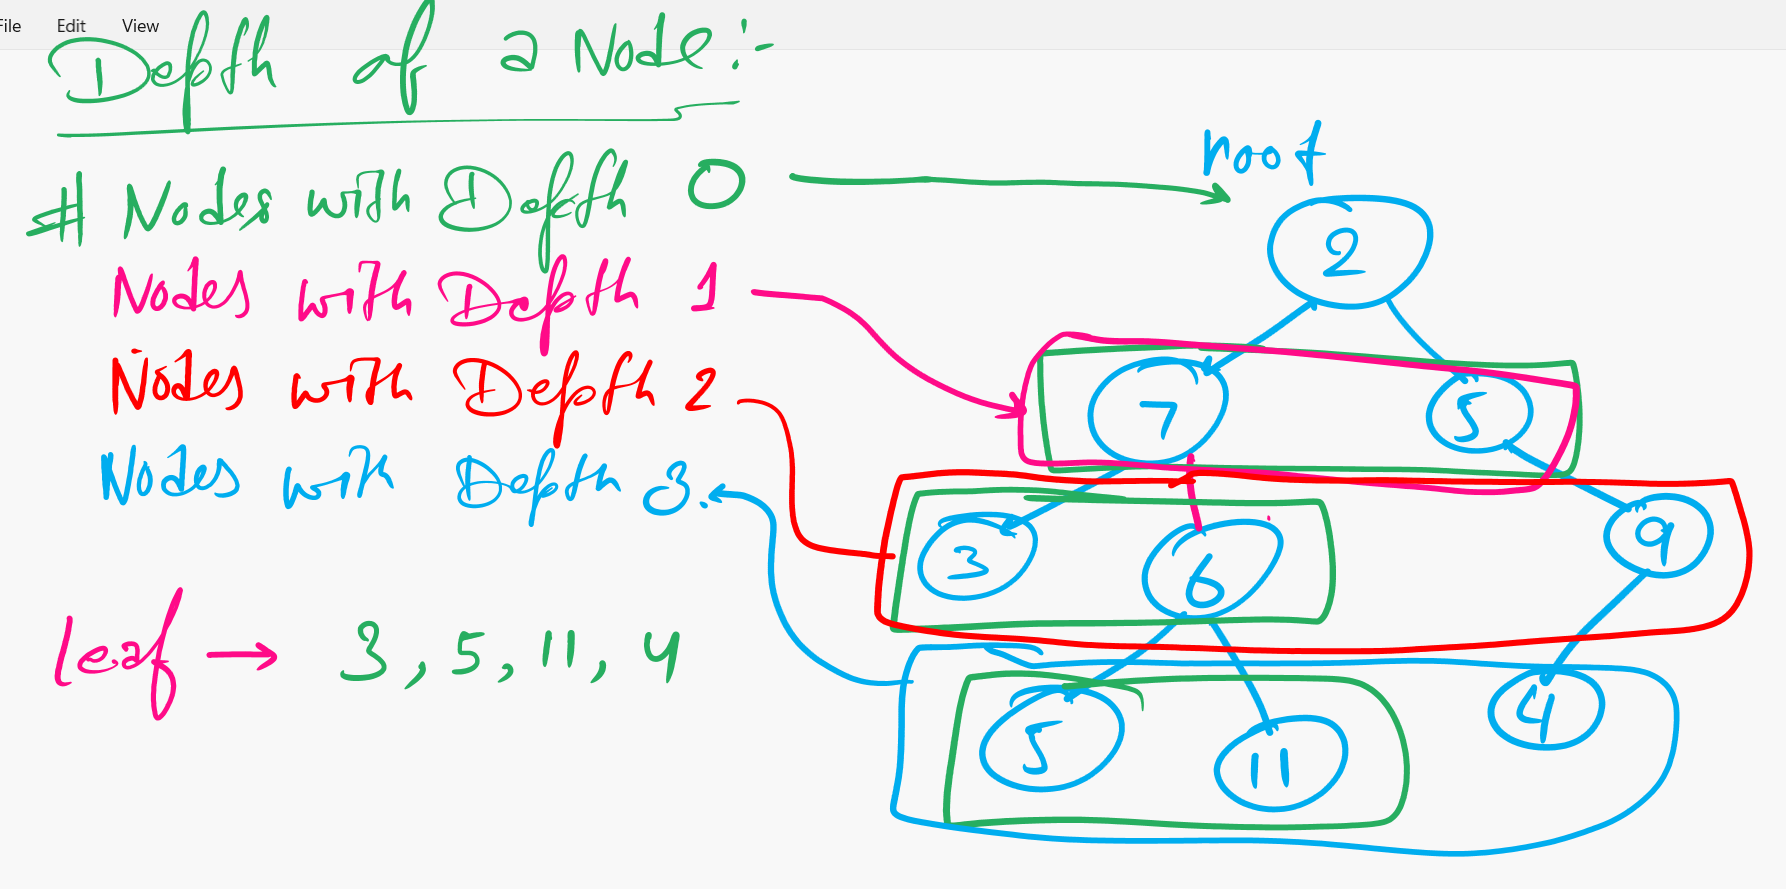 File Edit View
Depth of a Node:-
# Nodes with Depth 0
Nodes with Depth 1
Nodes with Depth 2
Nodes with Depth 3.
Leaf → 3, 5, 11, 4
root
2
7 5
3 6 9
5 11 4